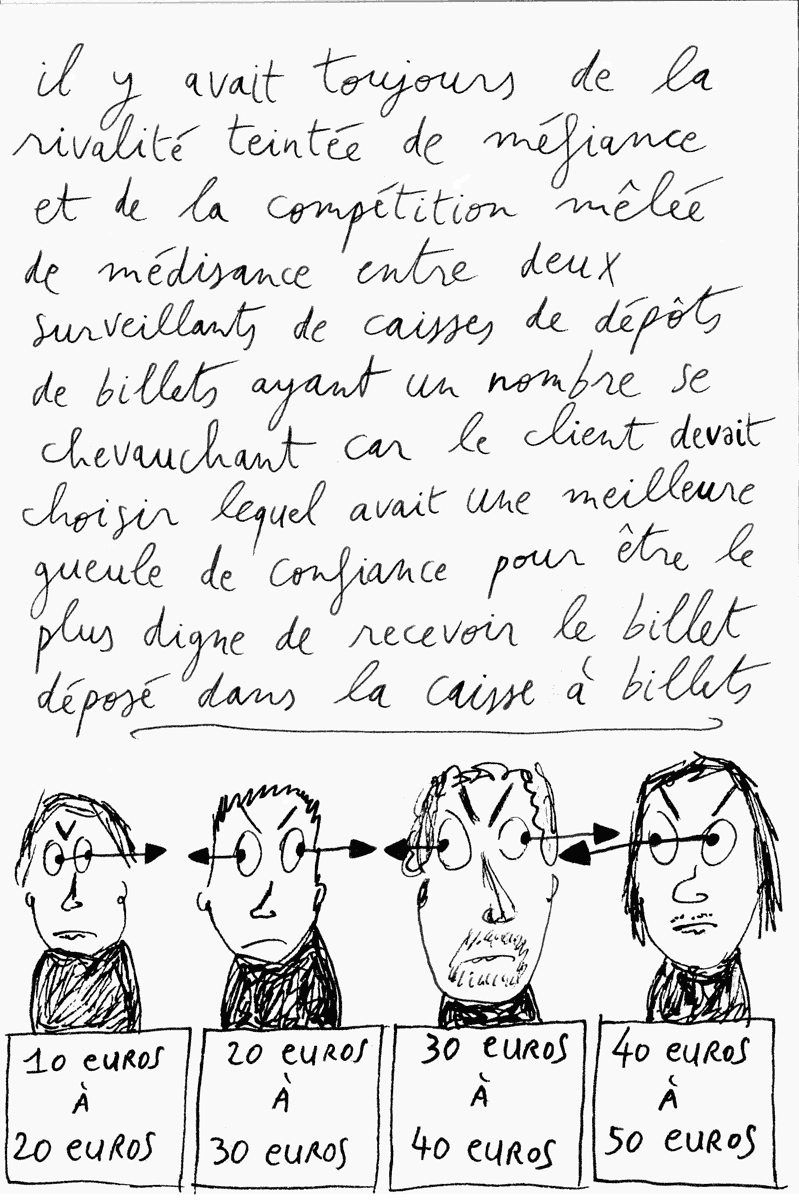 il y avait toujours de la
rivalité teintée de méfiance
et de la compétition mêlée
de médisance entre deux
surveillants de caisses de dépôts
de billets ayant un nombre se
chevauchant car le client devait
choisir lequel avait une meilleure
gueule de confiance pour être le
plus digne de recevoir le billet
déposé dans la caisse à billets
10 EUROS
À
20 EUROS
20 EUROS
À
30 EUROS
30 EUROS
À
40 EUROS
40 EUROS
À
50 EUROS